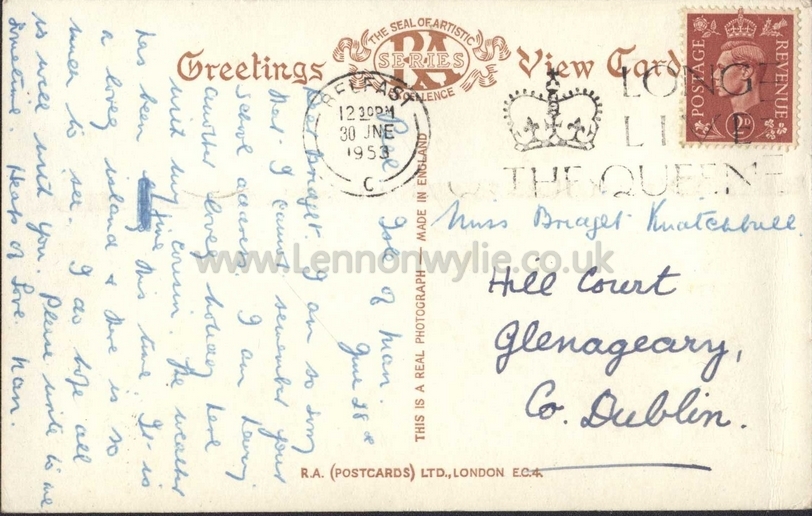 Greetings
THE SEAL OF ARTISTIC EXCELLENCE
RA
SERIES
View Card
POSTAGE
REVENUE
BELFAST
12 30 PM
30 JNE
1953
C
LONG
LIVE
THE QUEEN
Miss Bridget Knatchbull
Hill Court
Glenageary,
Co. Dublin.
Isle of Man.
June 28
Bridget. I am so sorry
that I cannot remember your
school address. I am having
another lovely holiday here
with my cousin. The weather
has been fine this time. It is
a lovely island & there is so
much to see. I do hope all
is well with you. Please write to me
sometime. Heaps of love. Nan.
THIS IS A REAL PHOTOGRAPH — MADE IN ENGLAND
R.A. (POSTCARDS) LTD., LONDON E.C.4.
www.Lennonwylie.co.uk